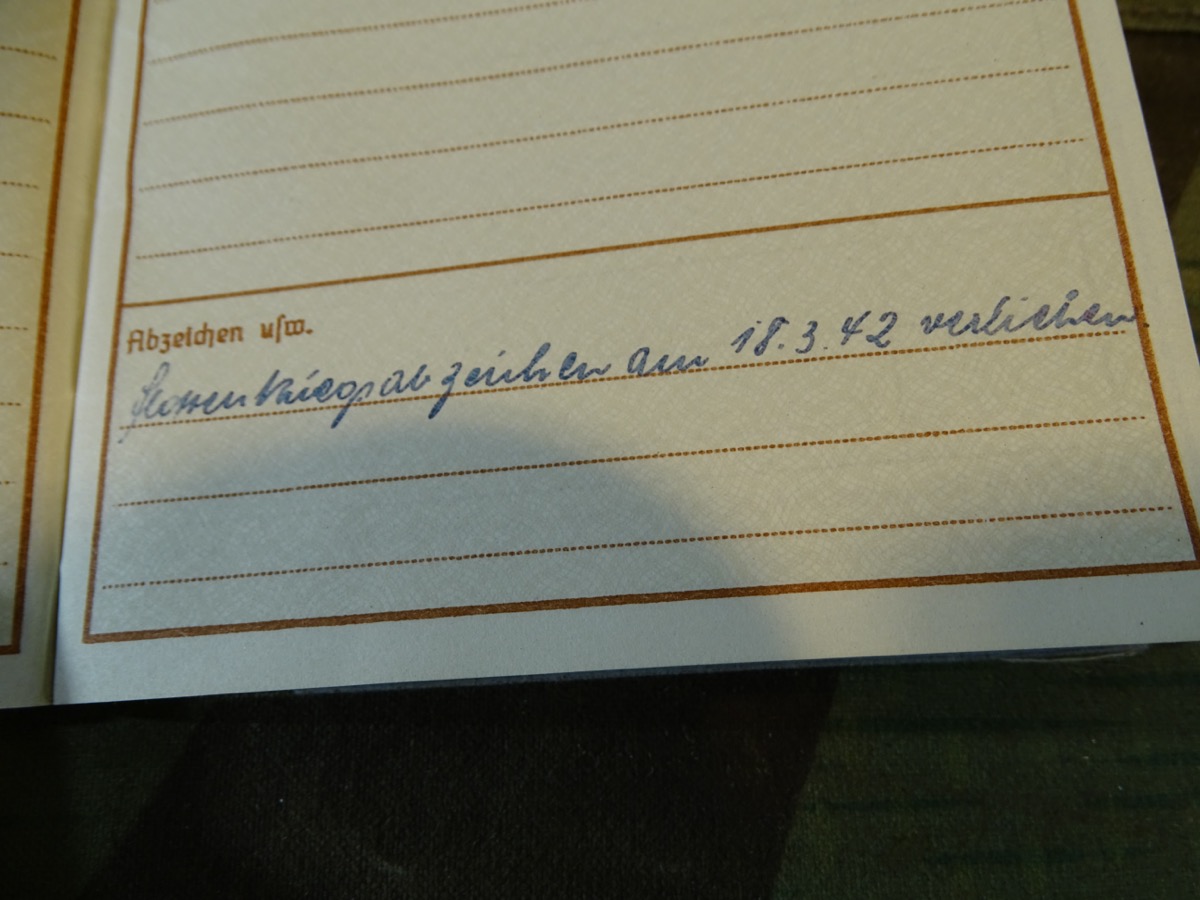 Abzeichen usw.
Flottenkriegsabzeichen am 18.3.42 verliehen.